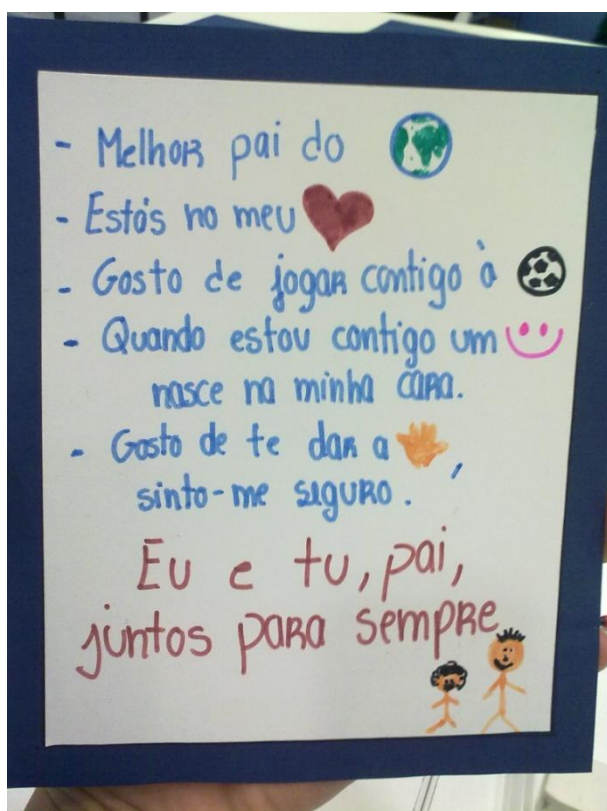 - Melhor pai do
- Estás no meu
- Gosto de jogar contigo à
- Quando estou contigo um
nasce na minha cara.
- Gosto de te dar a ,
sinto-me seguro.
Eu e tu, pai,
juntos para sempre